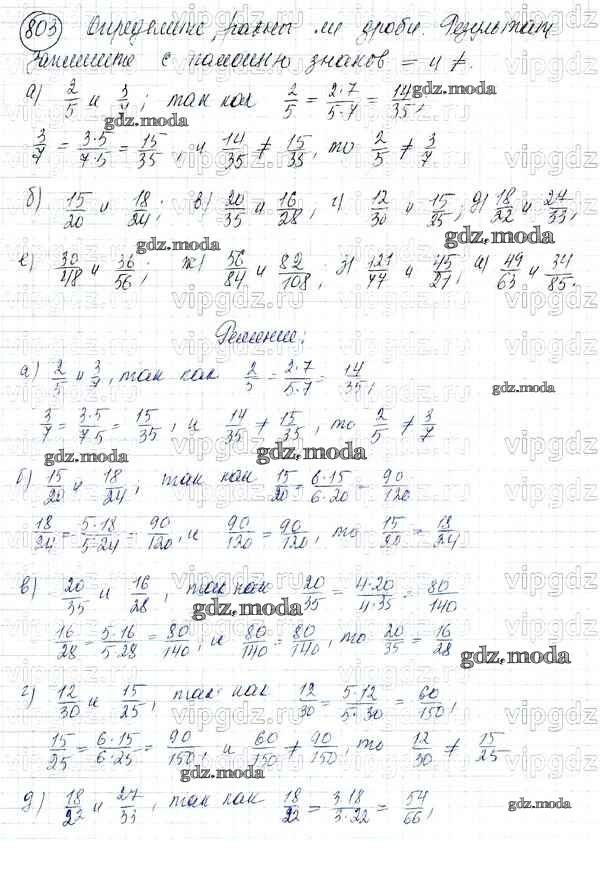 803 Определите, равны ли дроби. Результат
запишите с помощью знаков = и ≠.
а) 2/5 и 3/7; так как 2/5 = 2·7/5·7 = 14/35,
3/7 = 3·5/7·5 = 15/35, и 14/35 ≠ 15/35, то 2/5 ≠ 3/7
б) 15/20 и 18/24; в) 20/35 и 16/28; г) 12/30 и 15/25; д) 18/22 и 27/33;
е) 30/48 и 36/56; ж) 56/84 и 82/108; з) 121/77 и 45/27; и) 49/63 и 34/85.
Решение:
а) 2/5 и 3/7, так как 2/5 = 2·7/5·7 = 14/35,
3/7 = 3·5/7·5 = 15/35, и 14/35 ≠ 15/35, то 2/5 ≠ 3/7
б) 15/20 и 18/24; так как 15/20 = 6·15/6·20 = 90/120
18/24 = 5·18/5·24 = 90/120, и 90/120 = 90/120, то 15/20 = 18/24
в) 20/35 и 16/28, так как 20/35 = 4·20/4·35 = 80/140
16/28 = 5·16/5·28 = 80/140, и 80/140 = 80/140, то 20/35 = 16/28
г) 12/30 и 15/25, так как 12/30 = 5·12/5·30 = 60/150,
15/25 = 6·15/6·25 = 90/150, и 60/150 ≠ 90/150, то 12/30 ≠ 15/25
д) 18/22 и 27/33, так как 18/22 = 3·18/3·22 = 54/66,
gdz.moda
vipgdz.ru